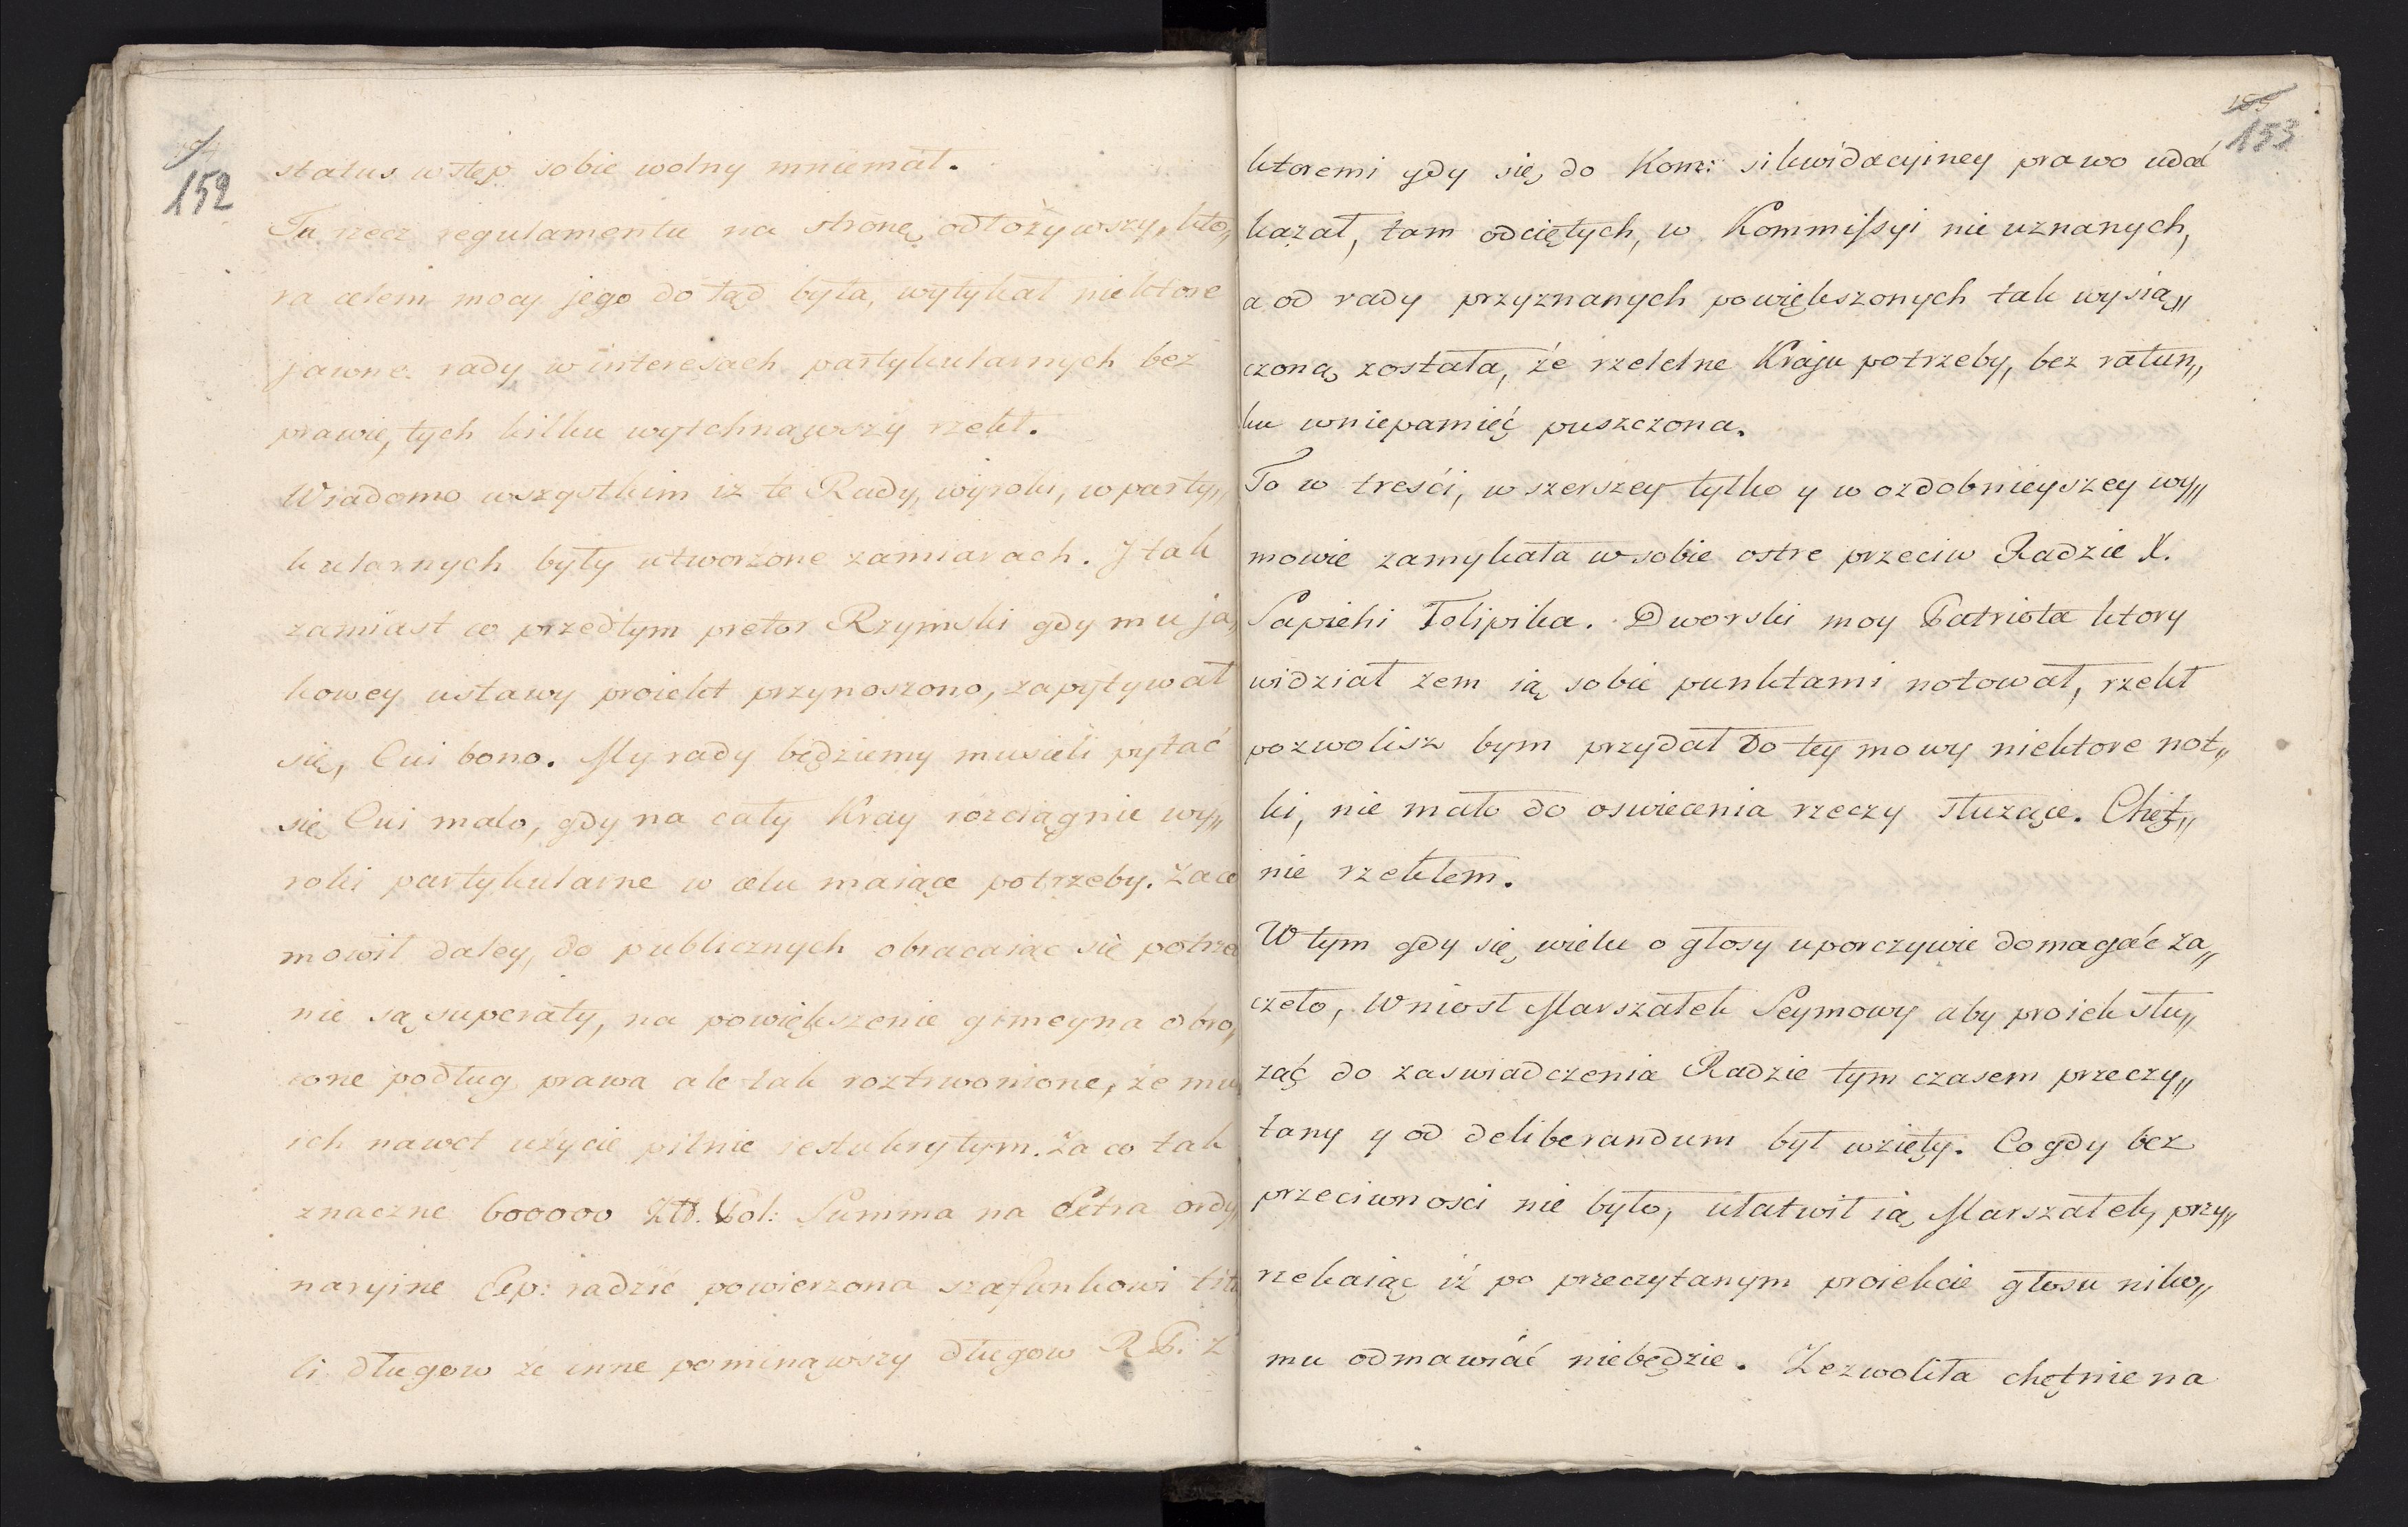 152
status wstęp sobie wolny mniemał.
Tu rzecz regulamentu na stronę odłożywszy, kto„
ra celem mocy jego do tąd była, wytykał niektore
jawne rady w interesach partykularnych bez
prawie, tych kilku wytchnąwszy rzekł.
Wiadomo wszystkim iz te Rady, wyroki, w party„
kularnych były utworzone zamiarach. J tak
zamiast co przedtym pretor Rzymski gdy mu ja„
kowey ustawy proiekt przynoszono, zapytywał
się, Cui bono. My rady będziemy musieli pytać
się Cui malo, gdy na cały Kray rozciągnie wy„
roki partykularne w celu maiące potrzeby. Za co
mowił daley, do publicznych obracaiąc się potrze
nie są superaty, na powiększenie gimeyna obro„
cone podług prawa ale tak roztrwonione, że mu
ich nawet użycie pilnie iest ukrytym. Za co tak
znaczne 600000 Złł. Pol: Summa na Extra ordy„
naryine Exp: radzie powierzona szafunkowi tit
li długow że inne pominąwszy długow R. P. z
153
ktoremi gdy się do Kom: likwidacyiney prawo udać
kazał, tam odciętych, w Kommissyi nie uznanych,
a od rady przyznanych powiększonych tak wysią„
czoną została, że rzetelne Kraju potrzeby, bez ratun„
ku w niepamięć puszczona.
To w treści, w szerszey tylko y w ozdobnieyszey wy„
mowie zamykała w sobie ostre przeciw Radzie X.
Sapiehi Folipika. Dworski moy Patriota ktory
widział zem ią sobie punktami notował, rzekł
pozwolisz bym przydał do tey mowy niektore not„
ki, nie mało do oswiecenia rzeczy służące. Chęt„
nie rzekłem.
W tym gdy się wielu o głosy uporczywie domagać za„
czeło, Wniosł Marszałek Seymowy aby proiek słu„
żąć do zaswiadczenia Radzie tym czasem przeczy„
tany y od deliberandum był wzięty. Co gdy bez
przeciwnosci nie było, ułatwił ią Marszałek, przy„
rzekaiąc iż po przeczytanym proiekcie głosu niko„
mu odmawiać niebędzie. Zezwoliła chętnie na